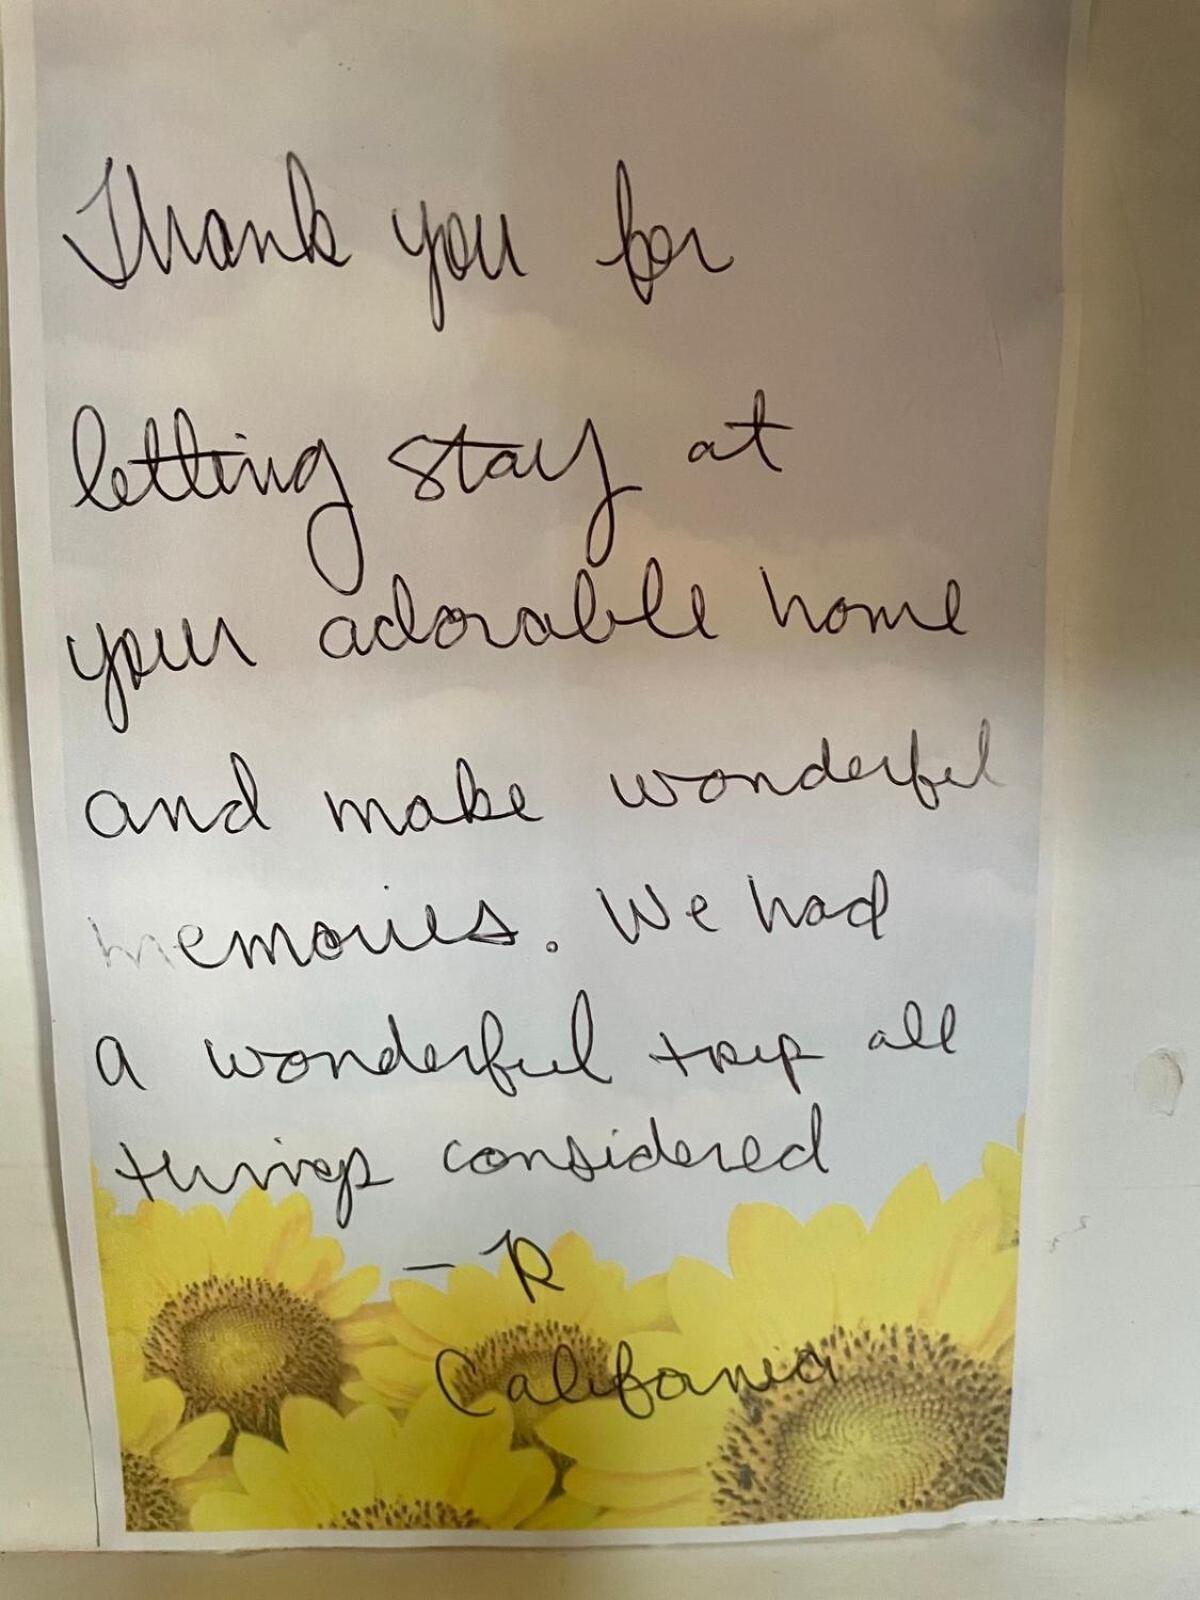 Thank you for
letting stay at
your adorable home
and make wonderful
memories. We had
a wonderful trip all
things considered
- R
California